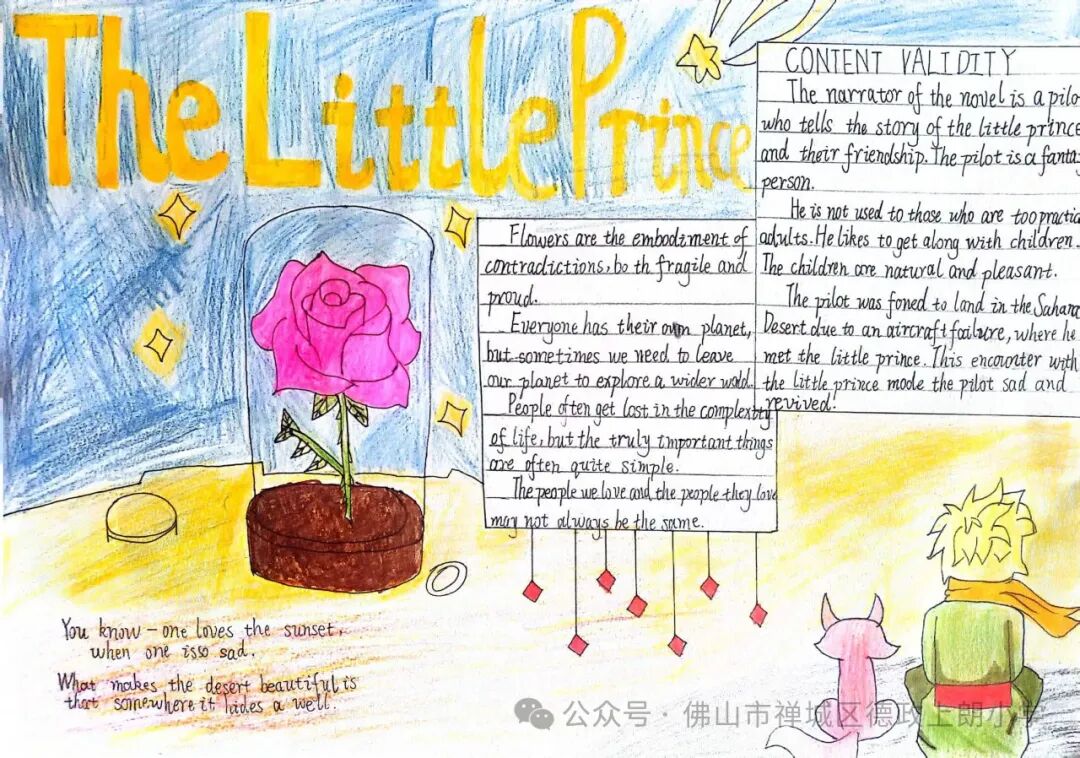 The Little Prince
CONTENT VALIDITY
The narrator of the novel is a pilo
who tells the story of the little prince
and their friendship. The pilot is a fanta
person.
He is not used to those who are too practica
adults. He likes to get along with children.
The children are natural and pleasant.
The pilot was foned to land in the Sahara
Desert due to an aircraft failure, where he
met the little prince. This encounter with
the little prince made the pilot sad and
revived!
Flowers are the embodiment of
contradictions, both fragile and
proud.
Everyone has their own planet,
but sometimes we need to leave
our planet to explore a wider world.
People often get lost in the complexity
of life, but the truly important things
are often quite simple.
The people we love and the people they love
may not always be the same.
You know – one loves the sunset,
when one is so sad.
What makes the desert beautiful is
that somewhere it hides a well.
公众号 · 佛山市禅城区德政上朗小学